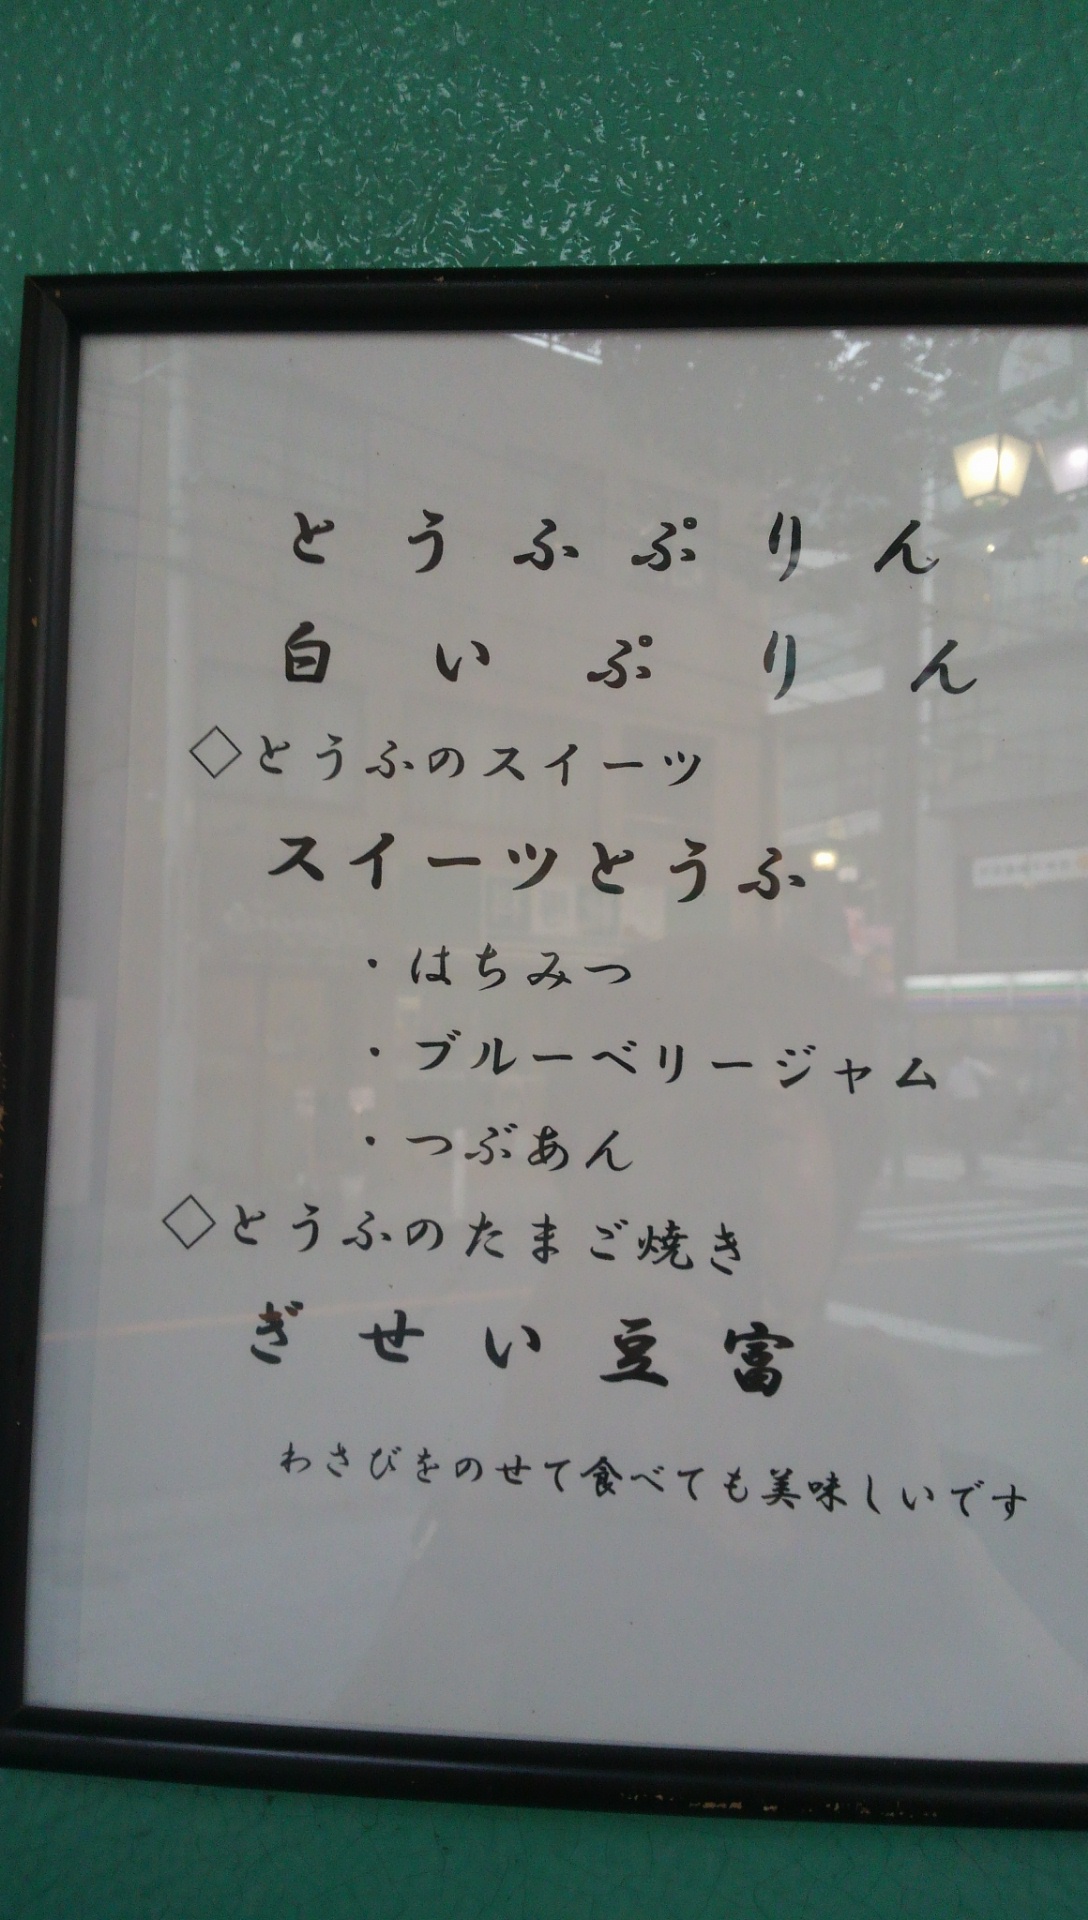 とうふぷりん
白いぷりん
◇とうふのスイーツ
スイーツとうふ
・はちみつ
・ブルーベリージャム
・つぶあん
◇とうふのたまご焼き
ぎせい豆富
わさびをのせて食べても美味しいです